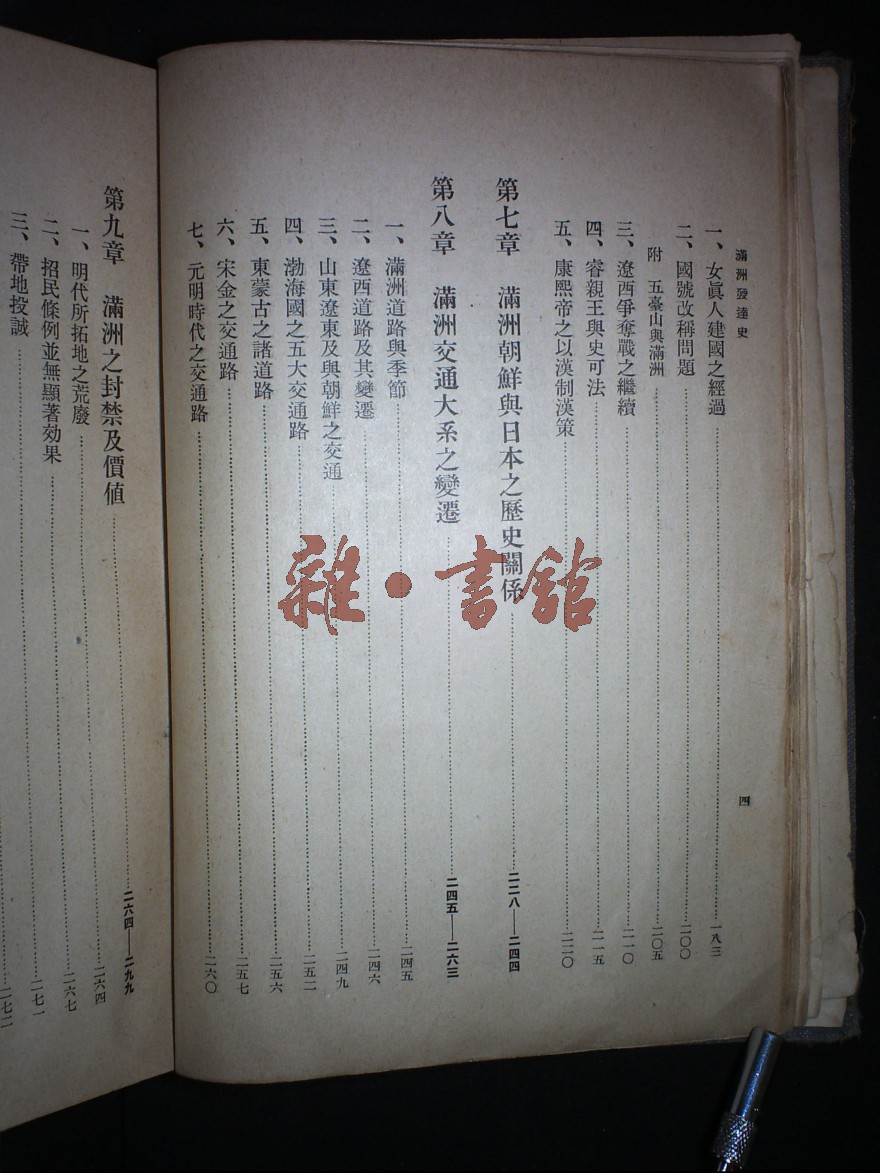 滿洲發達史
四
一、女眞人建國之經過……一八三
二、國號改稱問題……二〇〇
附 五臺山與滿洲……二〇五
三、遼西爭奪戰之繼續……二一〇
四、睿親王與史可法……二一五
五、康熙帝之以漢制漢策……二二〇
第七章 滿洲朝鮮與日本之歷史關係……二二八—二四四
第八章 滿洲交通大系之變遷……二四五—二六三
一、滿洲道路與季節……二四五
二、遼西道路及其變遷……二四六
三、山東遼東及與朝鮮之交通……二四九
四、渤海國之五大交通路……二五二
五、東蒙古之諸道路……二五六
六、宋金之交通路……二五七
七、元明時代之交通路……二六〇
第九章 滿洲之封禁及價值……二六四—二九九
一、明代所拓地之荒廢……二六四
二、招民條例並無顯著效果……二六七
三、帶地投誠……二七一
二七二
雜·書館